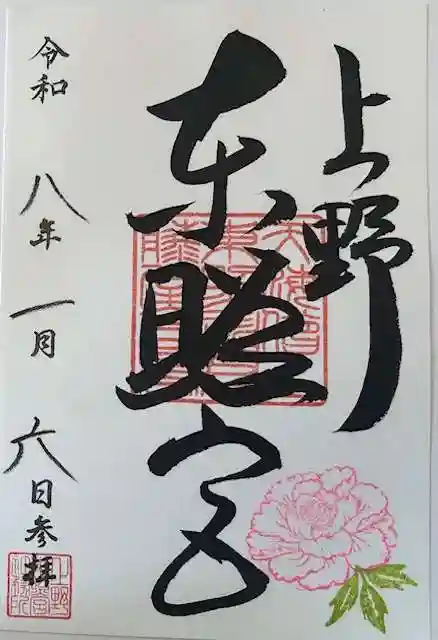 上野
東照宮
令和 八年 一月 六日参拝